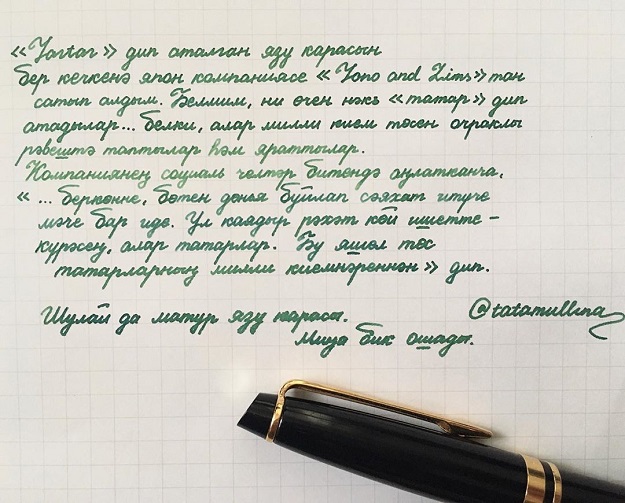 «Tartar» дип аталган язу карасын
бер кечкенә япон компаниясе «Tono and Lims» тан
сатып алдым. Белмим, ни өчен нәкъ «татар» дип
атадылар... белки, алар милли кием төсен очраклы
рәвештә таптылар һәм яраттылар.
Компаниянең социаль челтәр битендә аңлатканча,
«... беркөнне, бөтен дөнья буйлап сәяхәт итүче
мәче бар иде. Ул каядыр рәхәт көй ишетте –
күрәсең, алар татарлар. Бу яшел төс
татарларның милли киемнәреннән» дип.
Шулай да матур язу карасы.
Миңа бик ошады.
@tatamullina